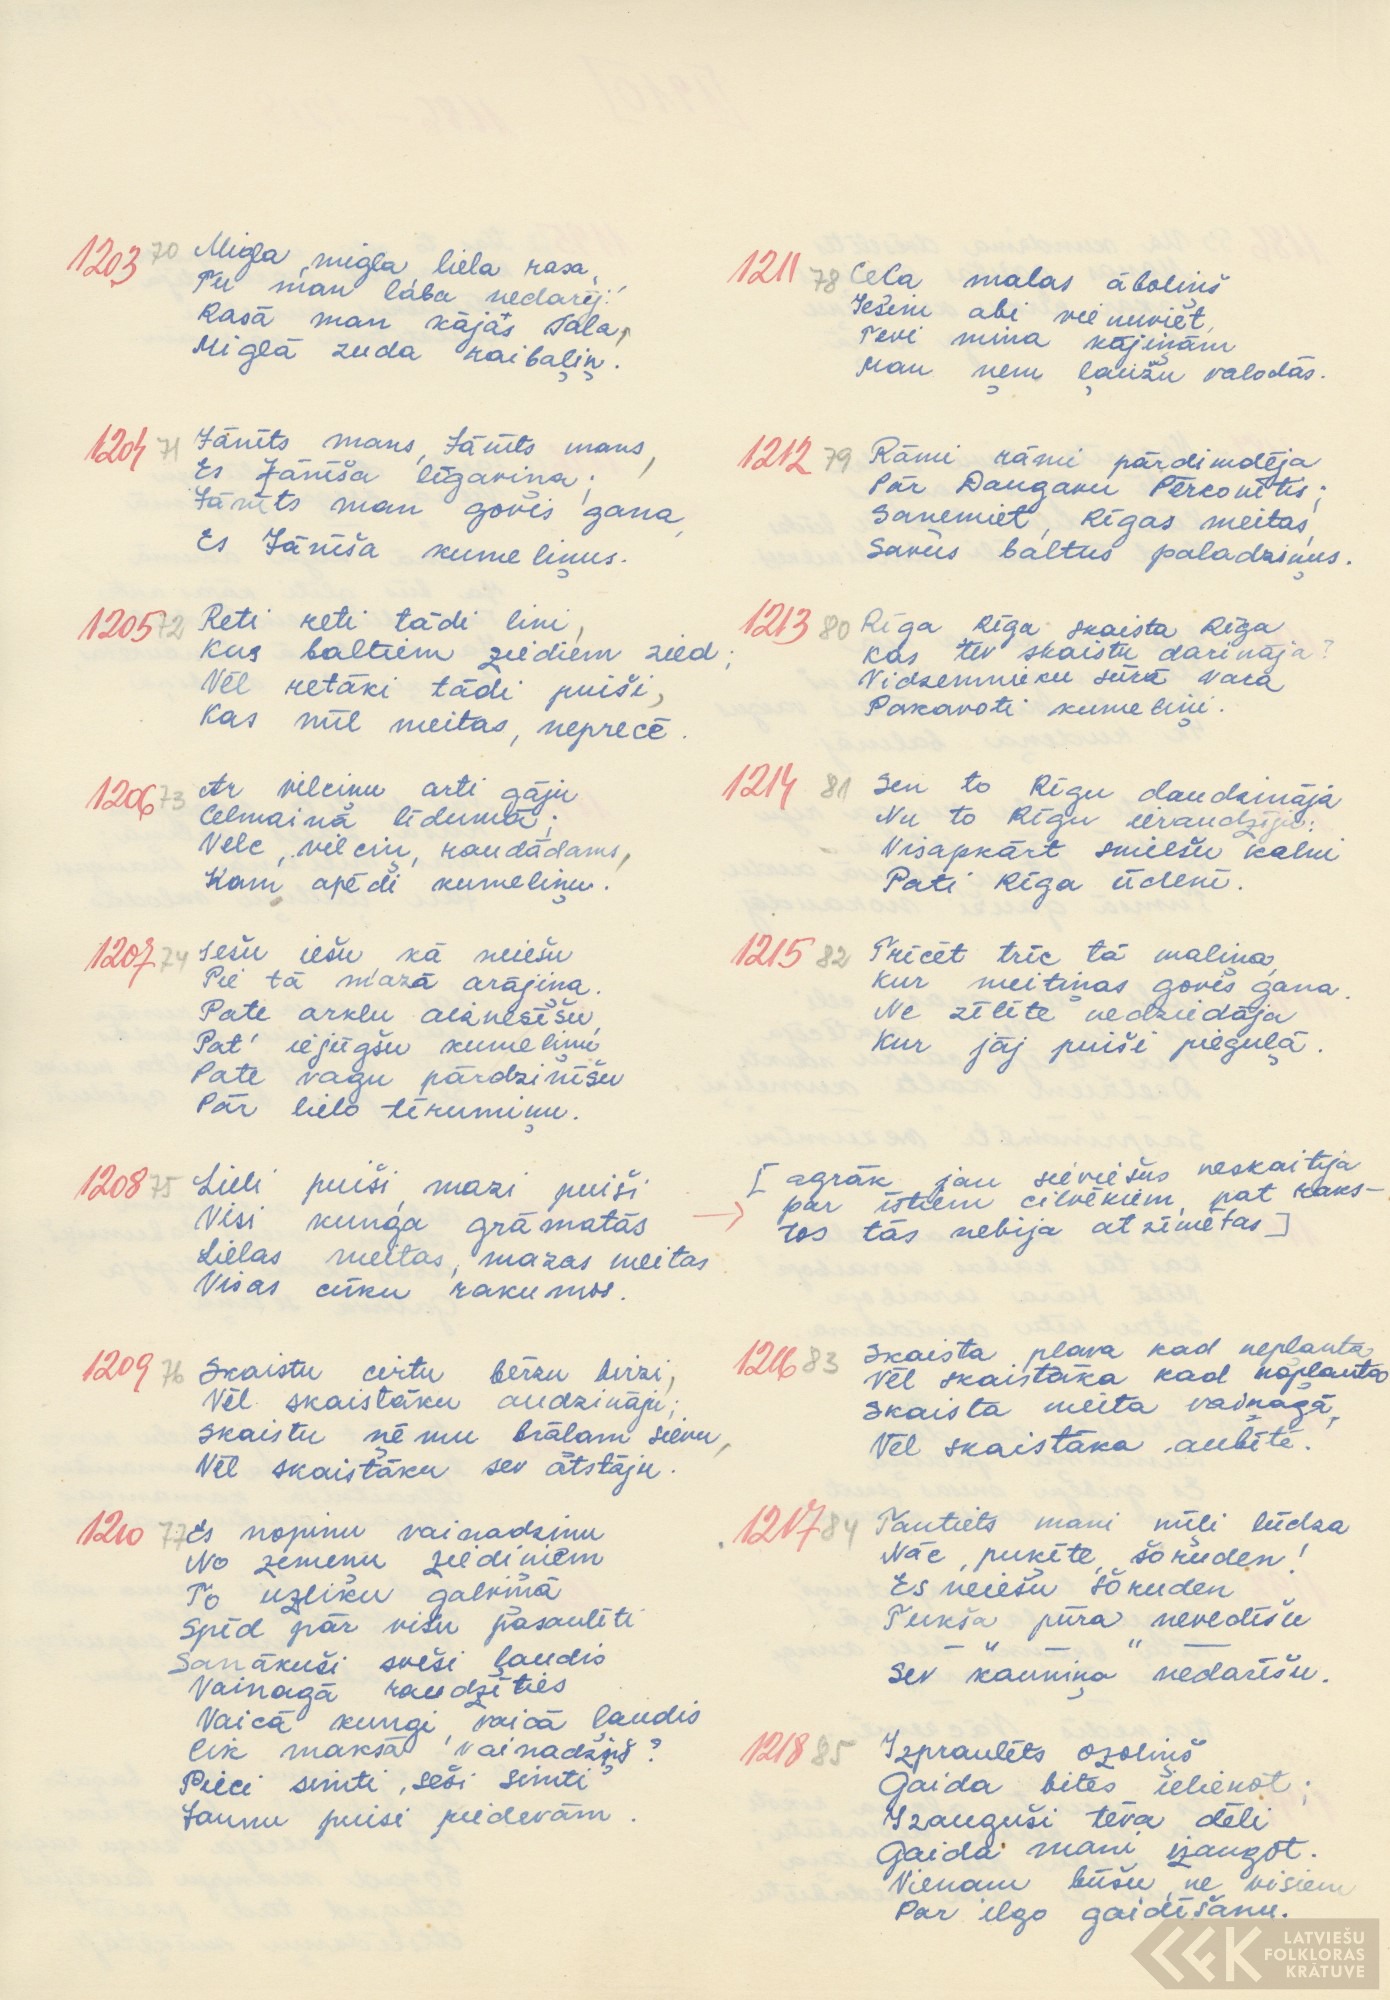 1203 70 Migla, migla, liela rasa,
Tu man laba nedarīj!
Rasā man kājās sala,
Miglā zuda raibaļiņ.
1204 71 Jānīts mans, Jānīts mans,
Es Jānīša līgaviņa;
Jānīts man govis gana,
Es Jānīša kumeliņus.
1205 72 Reti reti tādi lini,
Kus baltiem ziediem zied;
Vēl retāki tādi puiši,
Kas mīl meitas, neprecē.
1206 73 Ar vilciņu arti gāju
Celmainā līdumā;
Velc, vilciņ, raudādams,
Kam apēdi kumeliņu.
1207 74 Iešu iešu kā neiešu
Pie tā mazā arājiņa.
Pate arklu aiznesīšu,
Pat' iejūgšu kumeliņu
Pate vagu pārdzinīšu
Pār lielo tīrumiņu.
1208 75 Lieli puiši, mazi puiši
Visi kunga grāmatās
Lielas meitas, mazas meitas
Visas cūku rakumos.
1209 76 Skaistu cirtu bērzu birzi,
Vēl skaistāku audzināju;
Skaistu ņēmu brālam sievu,
Vēl skaistāku sev atstāju.
1210 77 Es nopinu vainadziņu
No zemeņu ziediņiem
To uzliku galviņā
Spīd pār visu pasaulīti
Sanākuši sveši ļaudis
Vainagā raudzīties
Vaicā kungi, vaicā ļaudis
Cik maksā vainadziņš?
Pieci simti, seši simti
Jaunu puisi piedevām.
1211 78 Ceļa malas āboliņš
Iesim abi vienuviet,
Tevi mina kājiņām
Man ņem ļaužu valodās.
1212 79 Rāmi rāmi pārdimdēja
Pār Daugavu Pērkonītis;
Saņemiet, Rīgas meitas,
Savus baltus paladziņus.
1213 80 Rīga Rīga, skaista Rīga
Kas tev skaistu darināja?
Vidzemnieku sūrā vara
Pakavoti kumeliņi.
1214 81 Sen to Rīgu daudzināja
Nu to Rīgu ieraudzīju:
Visapkārt smilšu kalni
Pati Rīga ūdenī.
1215 82 Trīcēt trīc tā maliņa,
Kur meitiņas govis gana.
Ne zīlīte nedziedāja
Kur jāj puiši pieguļā.
→ [agrāk jau sieviešus neskaitīja
par īstiem cilvēkiem, pat raks-
tos tās nebija atzīmētas]
1216 83 Skaista pļava kad nepļauta
Vēl skaistāka kad nopļauta
Skaista meita vaiņagā,
Vēl skaistāka aubītē.
1217 84 Tautiets mani mīļi lūdza
Nāc, puķīte, šoruden!
Es neiešu šoruden
Tukša pūra nevedīšu
— " — " —
Sev kauniņa nedarīšu.
1218 85 Izpraulēts ozoliņš
Gaida bites ielienot;
Izauguši tēva dēli
Gaida mani izaugot.
Vienam būšu, ne visiem
Par ilgo gaidīšanu.
LATVIEŠU
FOLKLORAS
KRĀTUVE